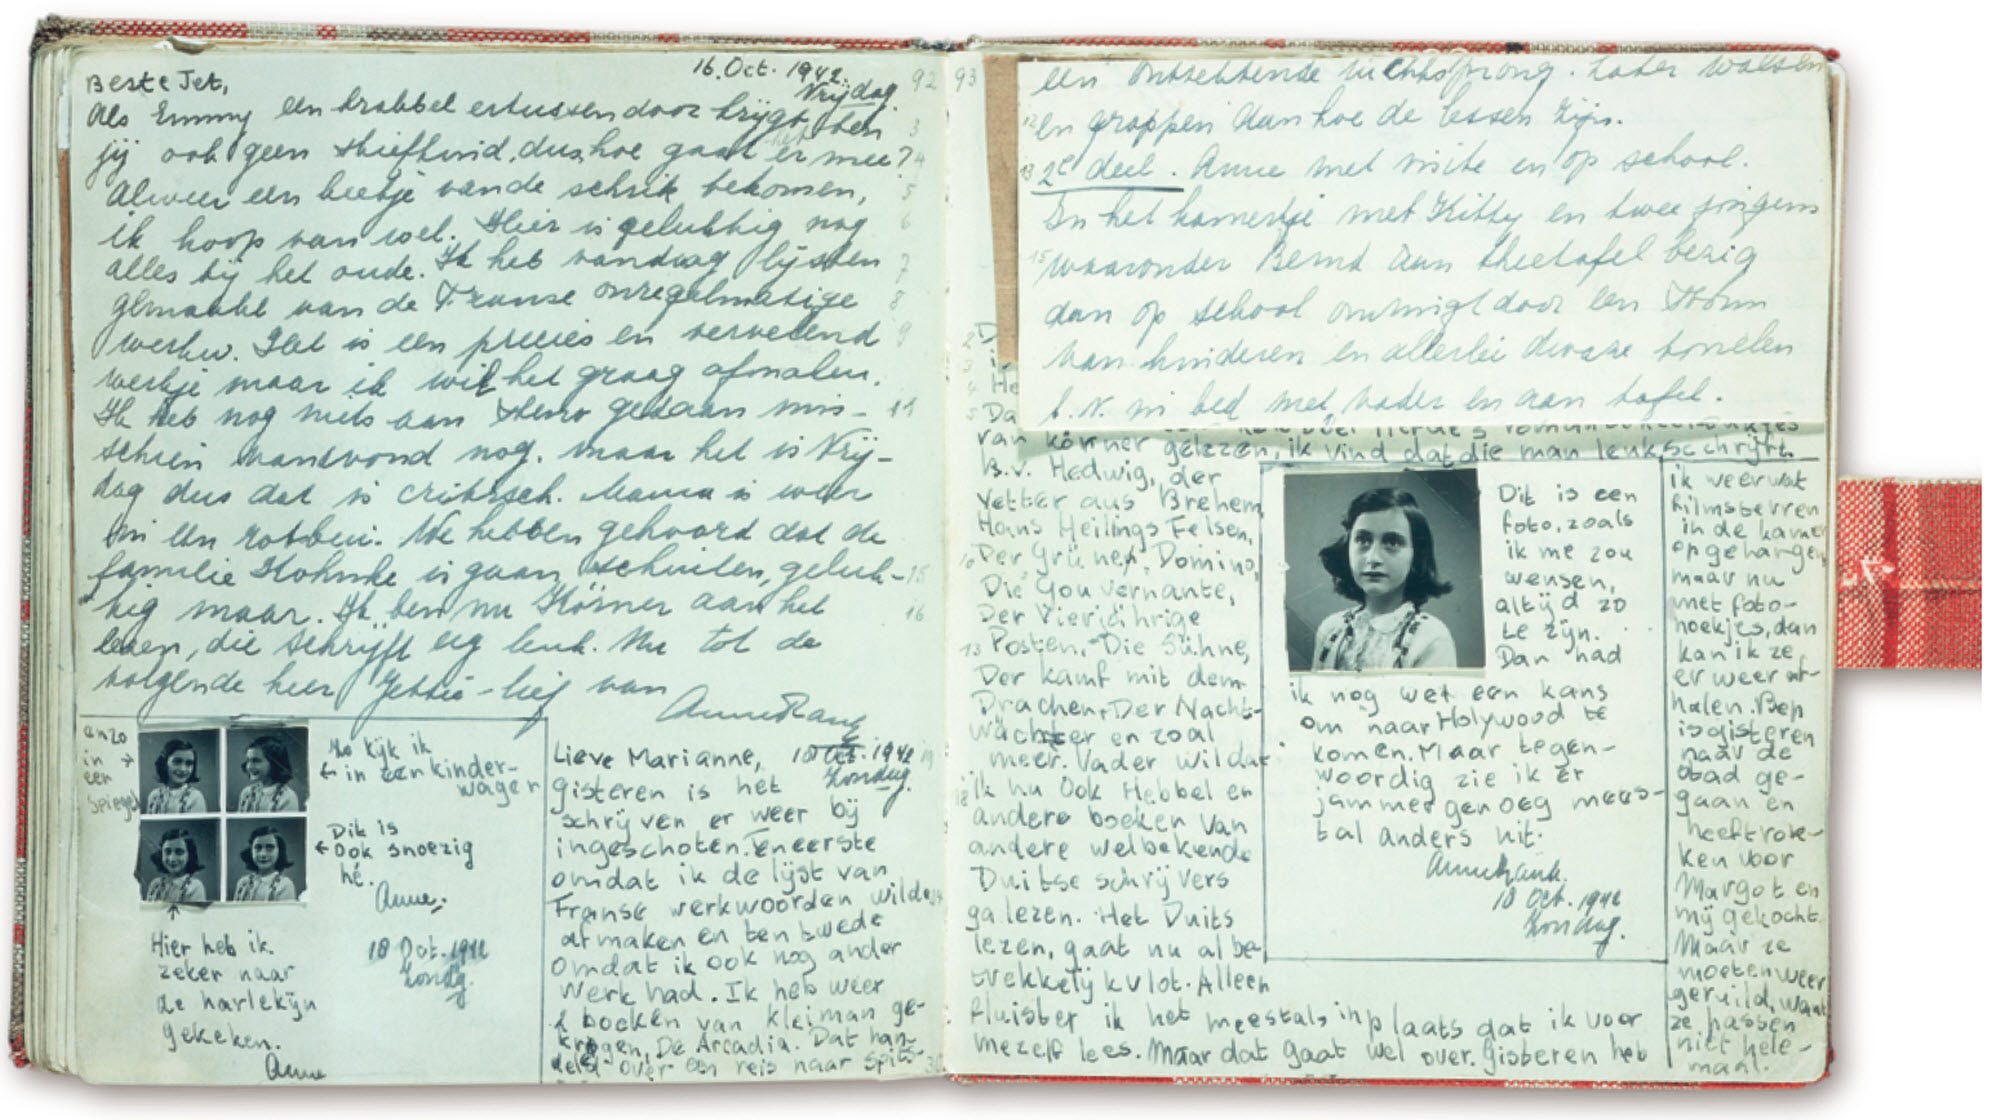 16. Oct. 1942.
Vrijdag.
92
Beste Jet,
Als Emmy een krabbel ertussendoor krijgt, ben
3
jij ook geen stiefkind, dus hoe gaat het er mee?
4
Alweer een beetje van de schrik bekomen,
5
ik hoop van wel. Hier is gelukkig nog
6
alles bij het oude. Ik heb vandaag lijsten
7
gemaakt van de Franse onregelmatige
8
werkw. Het is een precies en vervelend
9
werkje maar ik wil het graag afmaken.
Ik heb nog niets aan Steno gedaan mis-
11
schien vanavond nog. maar het is Vrij-
dag dus dat is critisch. Mama is weer
in een robbui. We hebben gehoord dat de
familie Kohnke is gaan schuilen, geluk-
15
kig maar. Ik ben nu Körner aan het
16
lezen, die schrijft erg leuk. Nu tot de
volgende keer Jettie-lief van
Anne Frank
enzo
in →
een
spiegel
Zo kijk ik
← in een kinder-
wagen
Dit is
← ook snoezig
hé.
Anne.
18 Oct. 1942
Zondag.
↑
Hier heb ik
zeker naar
de harlekijn
gekeken.
Anne
Lieve Marianne,
18 Oct. 1942
19
Zondag.
Gisteren is het
schrijven er weer bij
ingeschoten. Ten eerste
omdat ik de lijst van
Franse werkwoorden wilde
24
afmaken en ten twede
omdat ik ook nog ander
werk had. Ik heb weer
2 boeken van Kleiman ge-
kregen, De Arcadia. Dat han-
delt over een reis naar Spits-
30
93
een ontzettende luchtsprong. Later walsen
12
en grappen aan hoe de lessen zijn.
13
2e deel. Anne met visite en op school.
In het kamertje met Kitty en twee jongens
15
waaronder Bernd aan theetafel bezig
dan op school omringt door een stroom
van kinderen en allerlei dwaze tonelen
b.v. in bed met vader en aan tafel.
2
3
4
He
5
Da
van Körner gelezen, ik vind dat die man leuk schrijft.
B.v. Hedwig, der
Vetter aus Brehem
Hans Heilings Felsen,
10
Der Grüner, Domino,
Die Gouvernante,
Der Vierjährige
13
Posten, Die Sühne,
Der kamf mit dem
Drachen, Der Nacht-
wächter en zoal
meer. Vader wil dat
18
ik nu ook Hebbel en
andere boeken van
andere welbekende
Duitse schrijvers
ga lezen. Het Duits
lezen, gaat nu al be-
trekkelijk vlot. Alleen
fluister ik het meestal, in plaats dat ik voor
mezelf lees. Maar dat gaat wel over. Gisteren heb
Dit is een
foto, zoals
ik me zou
wensen,
altijd zo
te zijn.
Dan had
ik nog wel een kans
om naar Holywood te
komen. Maar tegen-
woordig zie ik er
jammer genoeg mees-
tal anders uit.
Anne Frank.
18 Oct. 1942
Zondag.
ik weer wat
filmsterren
in de kamer
opgehangen,
maar nu
met foto-
hoekjes, dan
kan ik ze
er weer af-
halen. Bep
is gisteren
naar de
stad ge-
gaan en
heeft rok-
ken voor
Margot en
mij gekocht.
Maar ze
moeten weer
geruild, want
ze passen
niet hele-
maal.